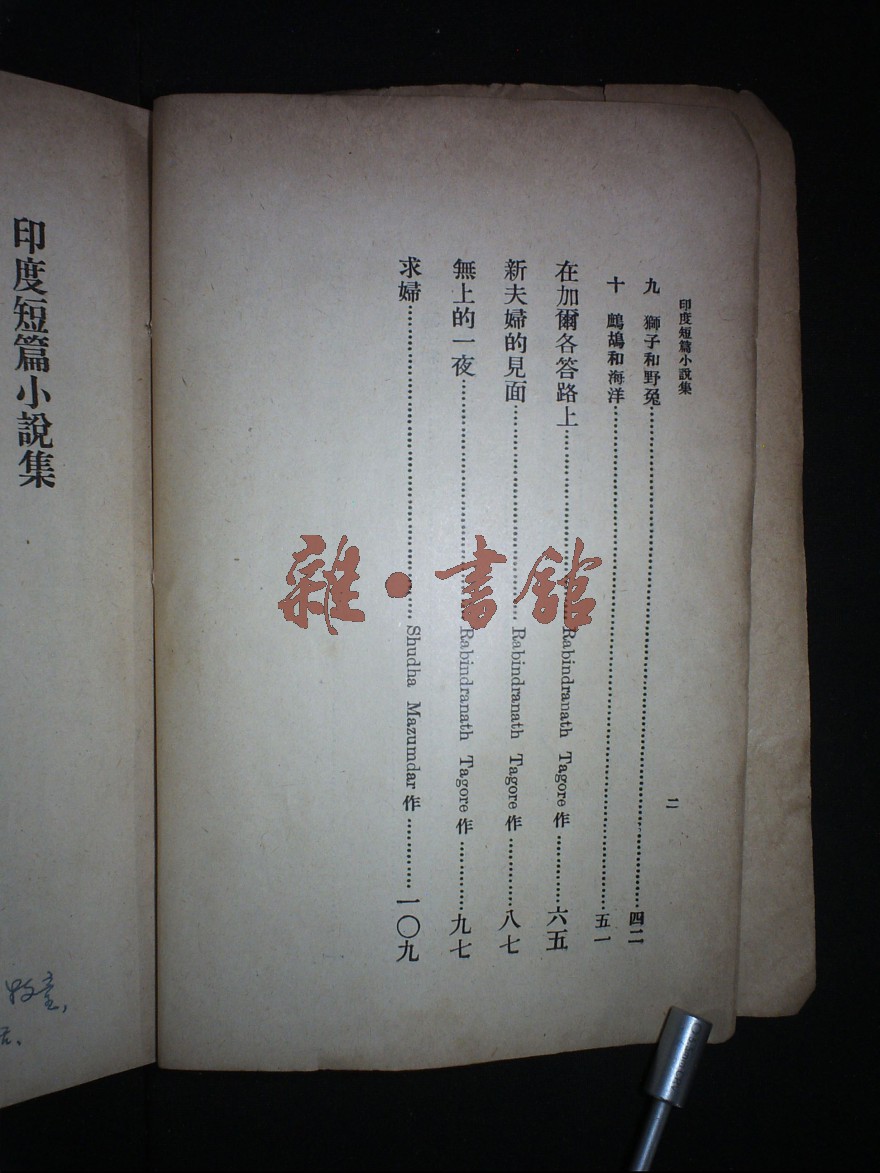 印度短篇小說集
二
九　獅子和野兔……四二
十　鷓鴣和海洋……五一
在加爾各答路上……Rabindranath Tagore作……六五
新夫婦的見面……Rabindranath Tagore作……八七
無上的一夜……Rabindranath Tagore作……九七
求婦……Shudha Mazumdar作……一〇九
印度短篇小說集
雜・書館